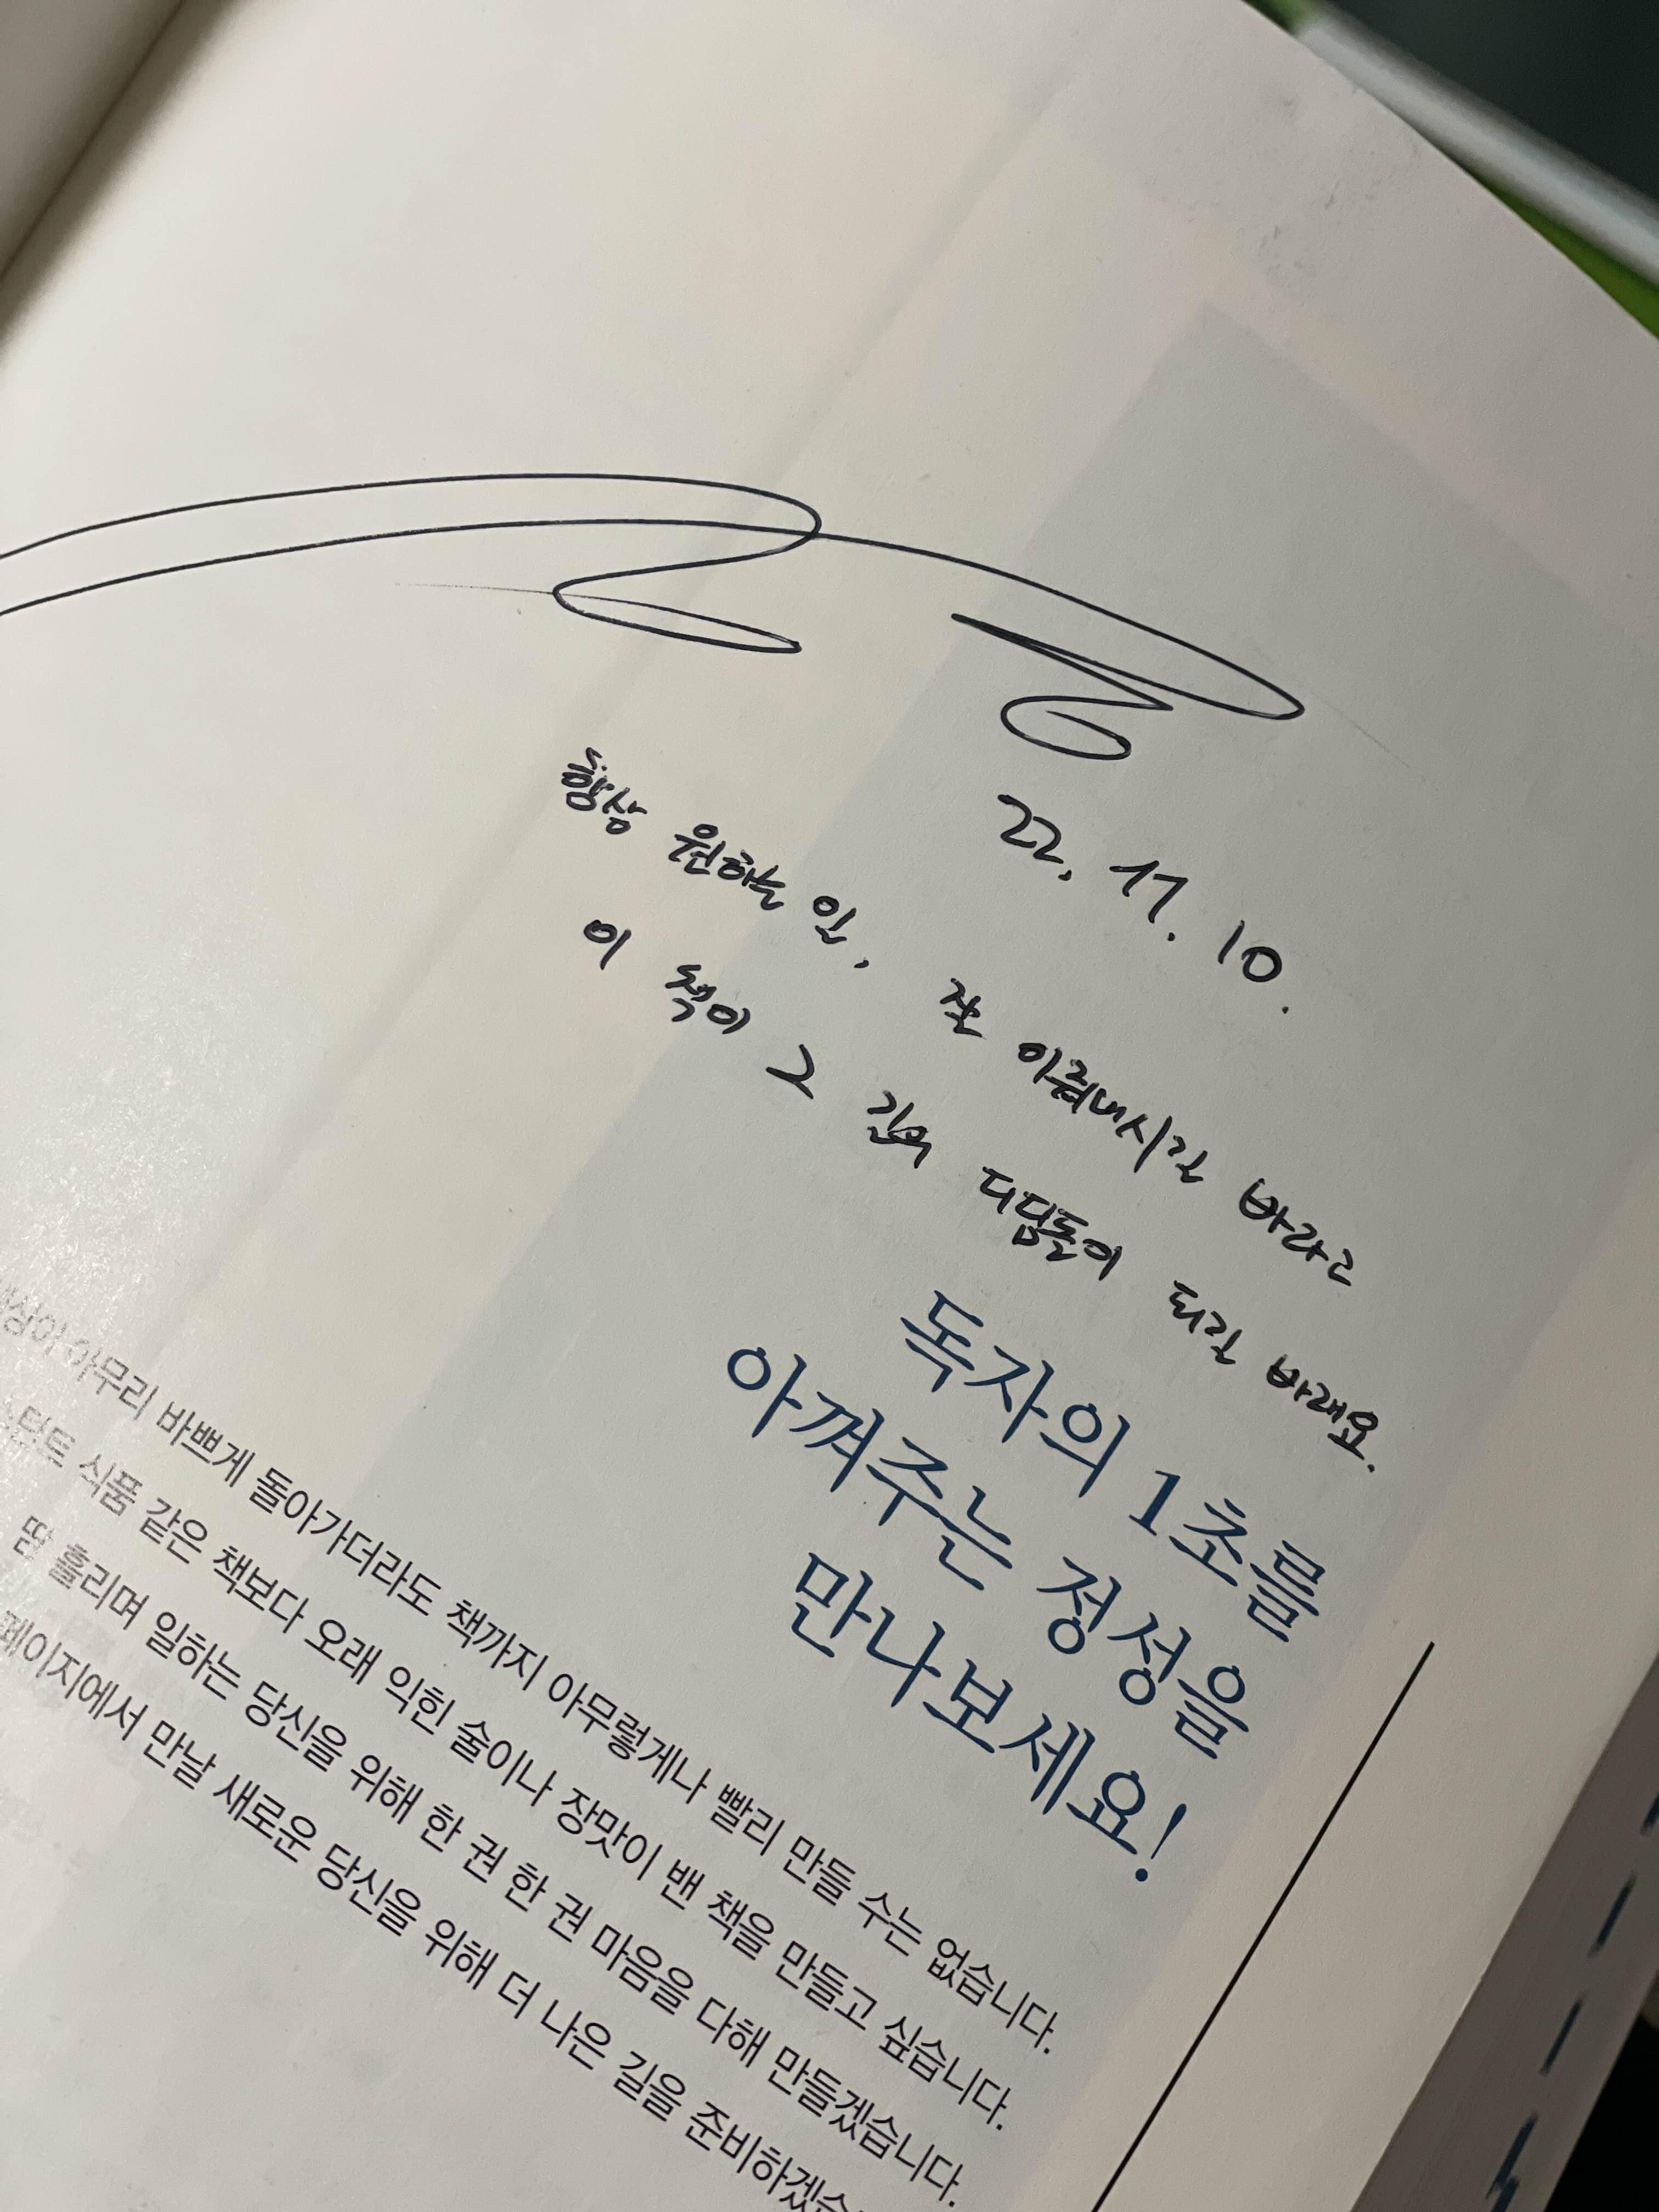 22. 11. 10.
항상 원하는 일, 잘 이뤄내시길 바라고
이 책이 그 길에 디딤돌이 되길 바래요.
독자의 1초를
아껴주는 정성을
만나보세요!
세상이 아무리 바쁘게 돌아가더라도 책까지 아무렇게나 빨리 만들 수는 없습니다.
스턴트 식품 같은 책보다 오래 익힌 술이나 장맛이 밴 책을 만들고 싶습니다.
땀 흘리며 일하는 당신을 위해 한 권 한 권 마음을 다해 만들겠습니다.
페이지에서 만날 새로운 당신을 위해 더 나은 길을 준비하겠습